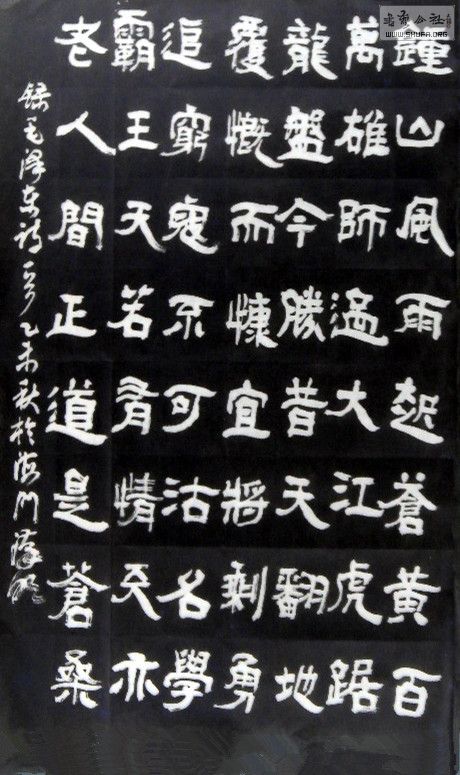 鐘山風雨起蒼黃百
萬雄師過大江虎踞
龍盤今勝昔天翻地
覆慨而慷宜將剩勇
追窮寇不可沽名學
霸王天若有情天亦
老人間正道是蒼桑
錄毛澤東詩一首乙未秋於海門
公社
WWW.SHUFA.ORG